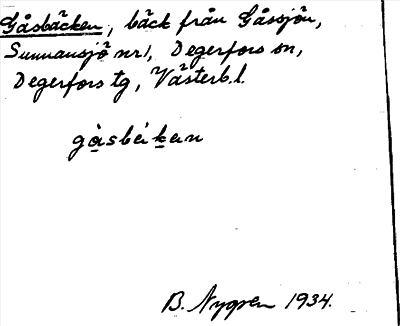 Gåsbäcken, bäck från Gåssjön,
Sunnansjö nr 1, Degerfors sn,
Degerfors tg, Västerb. l.
B. Nygren 1934.